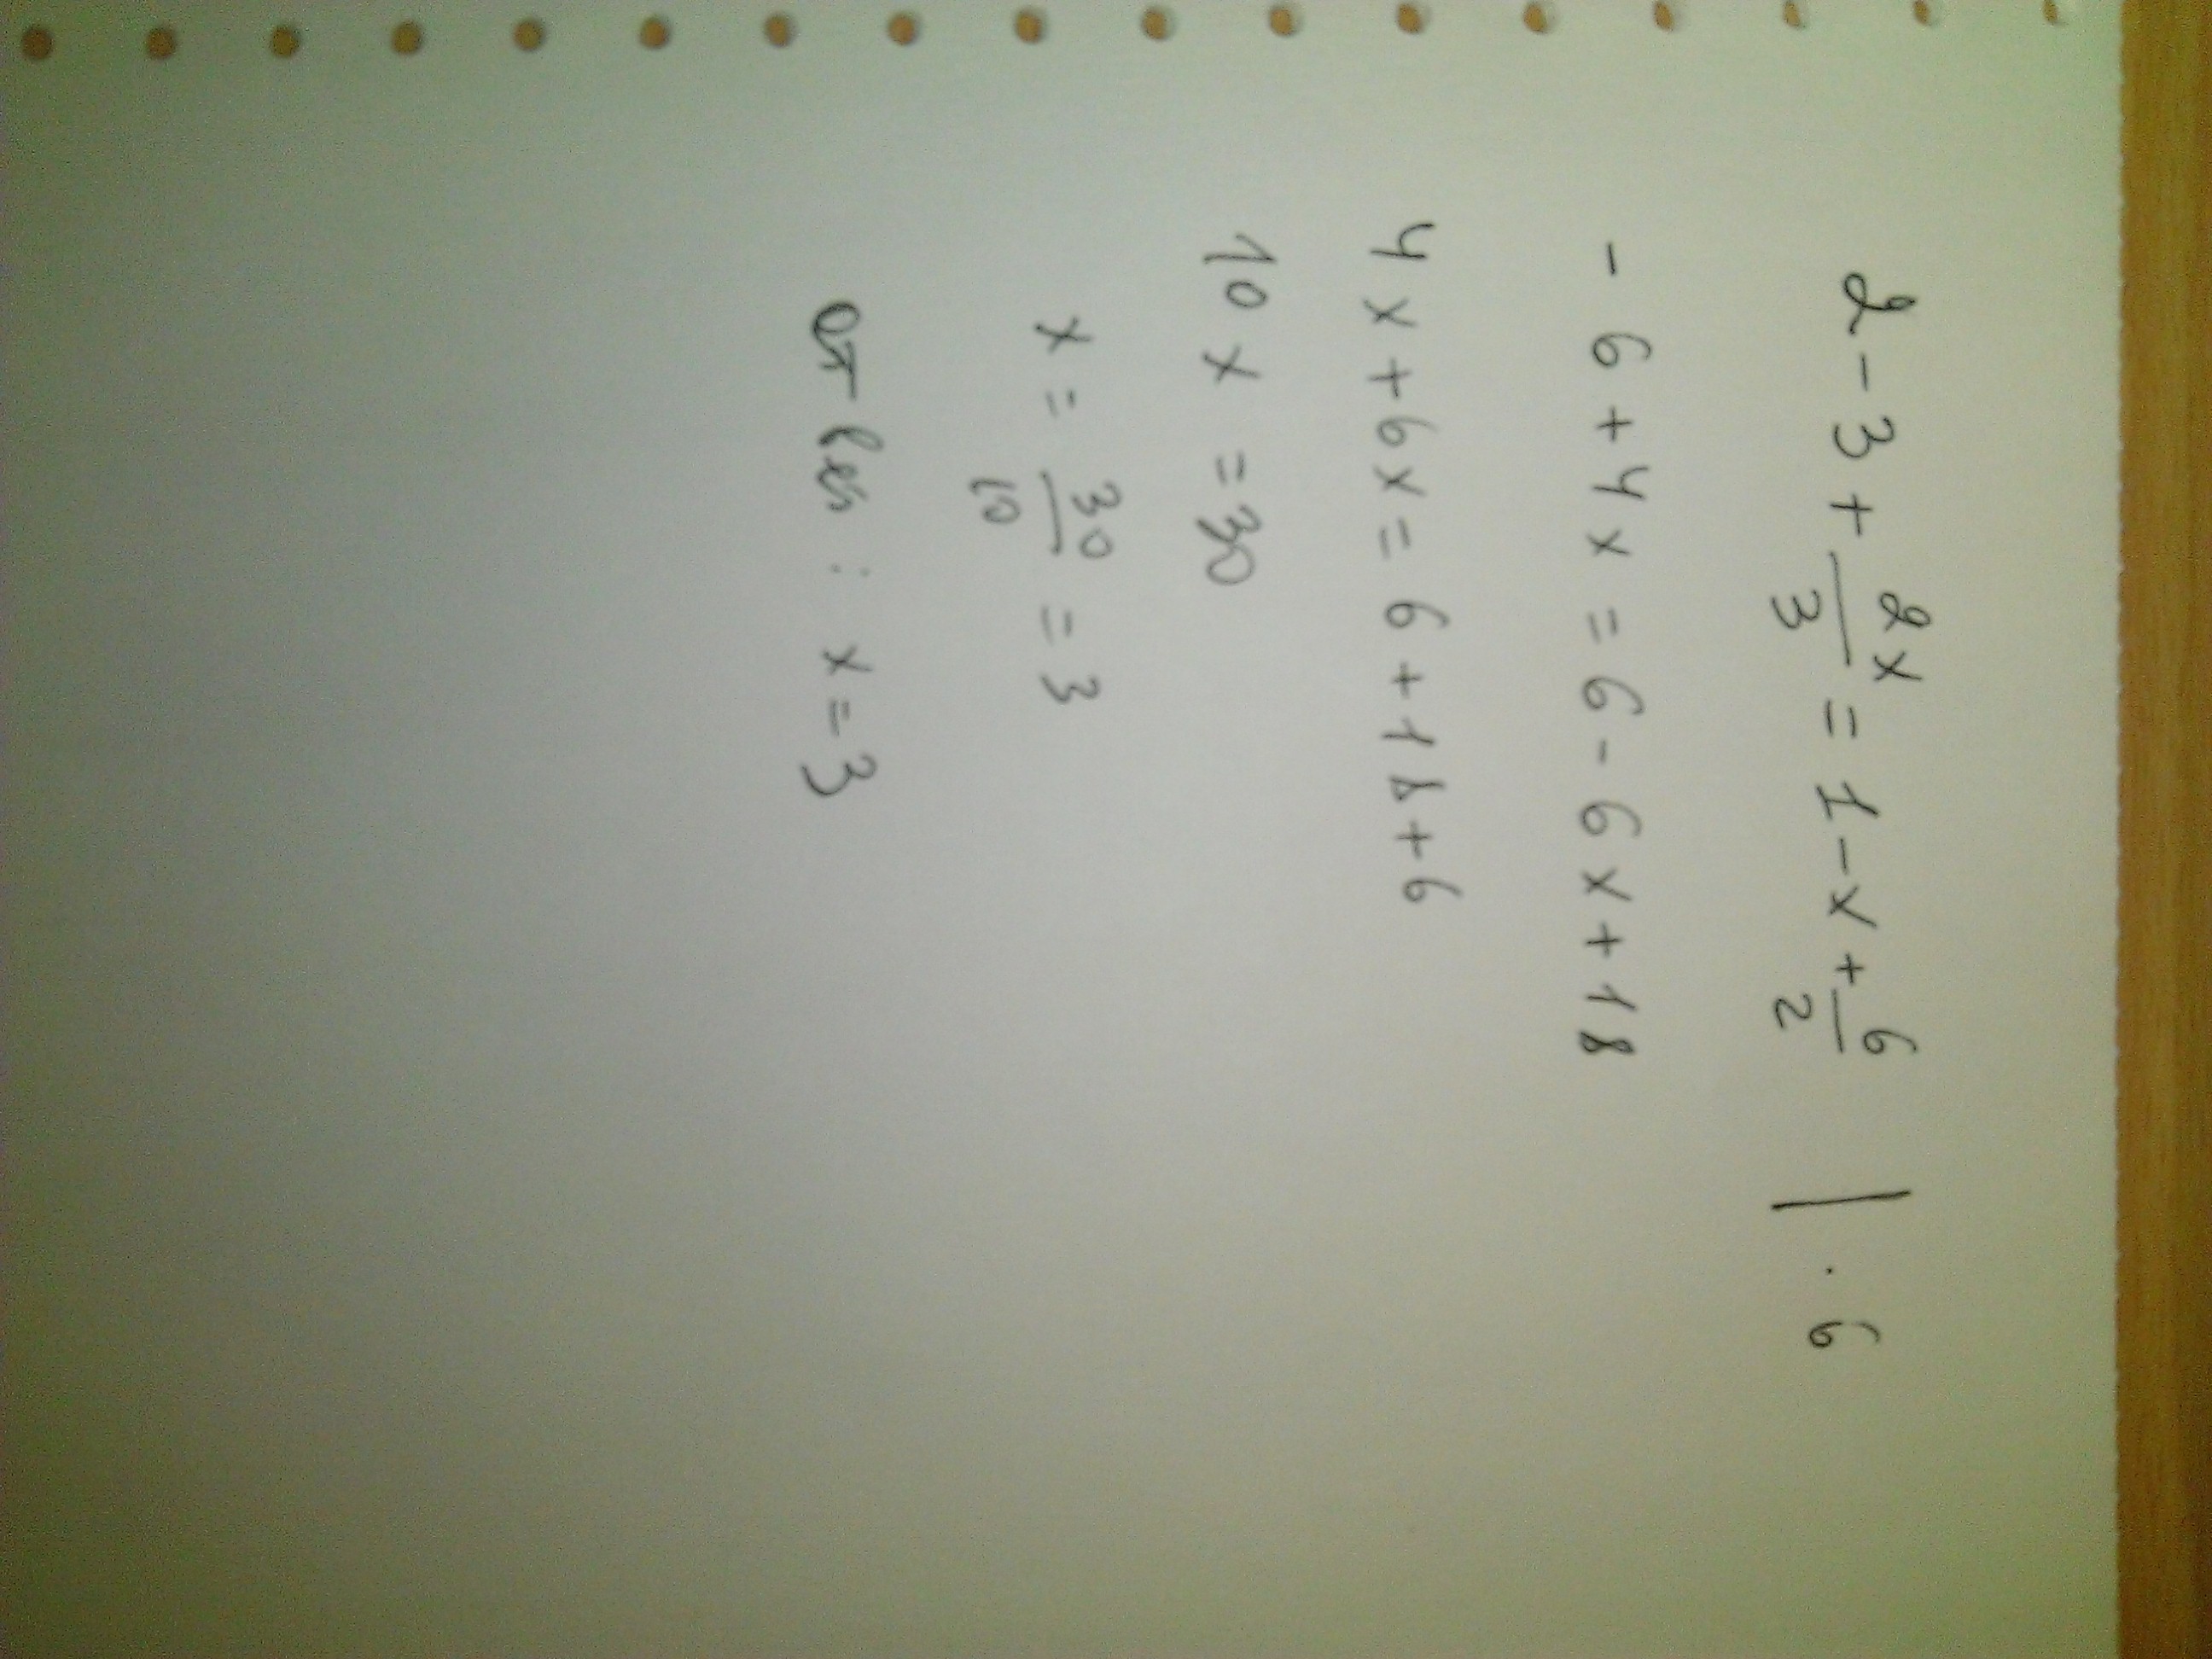 2 - 3 + 2x/3 = 1 - x + 6/2 | · 6
- 6 + 4x = 6 - 6x + 18
4x + 6x = 6 + 18 + 6
10x = 30
x = 30/10 = 3
: x = 3